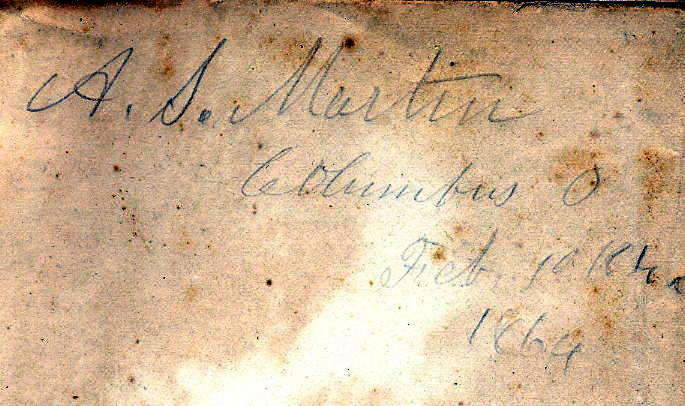 A. S. Martin
Columbus O
Feb. 10th.
1864